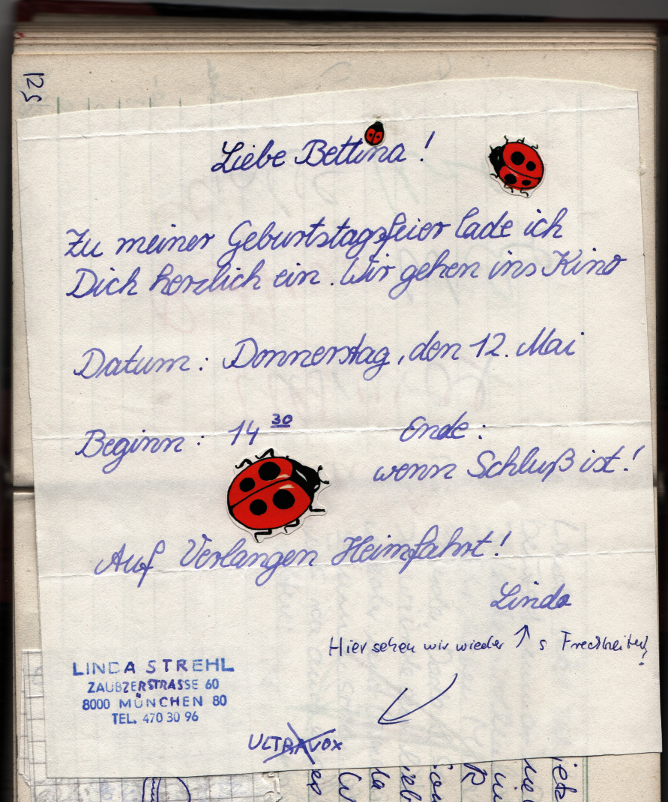 125
Liebe Bettina!
Zu meiner Geburtstagsfeier lade ich
Dich herzlich ein. Wir gehen ins Kino
Datum: Donnerstag, den 12. Mai
Beginn: 14 30
Ende:
wenn Schluß ist!
Auf Verlangen Heimfahrt!
Linda
Hier sehen wir wieder ↑ s Frechheiten!
LINDA STREHL
ZAUBZERSTRASSE 60
8000 MÜNCHEN 80
TEL. 470 30 96
ULTRAVOX